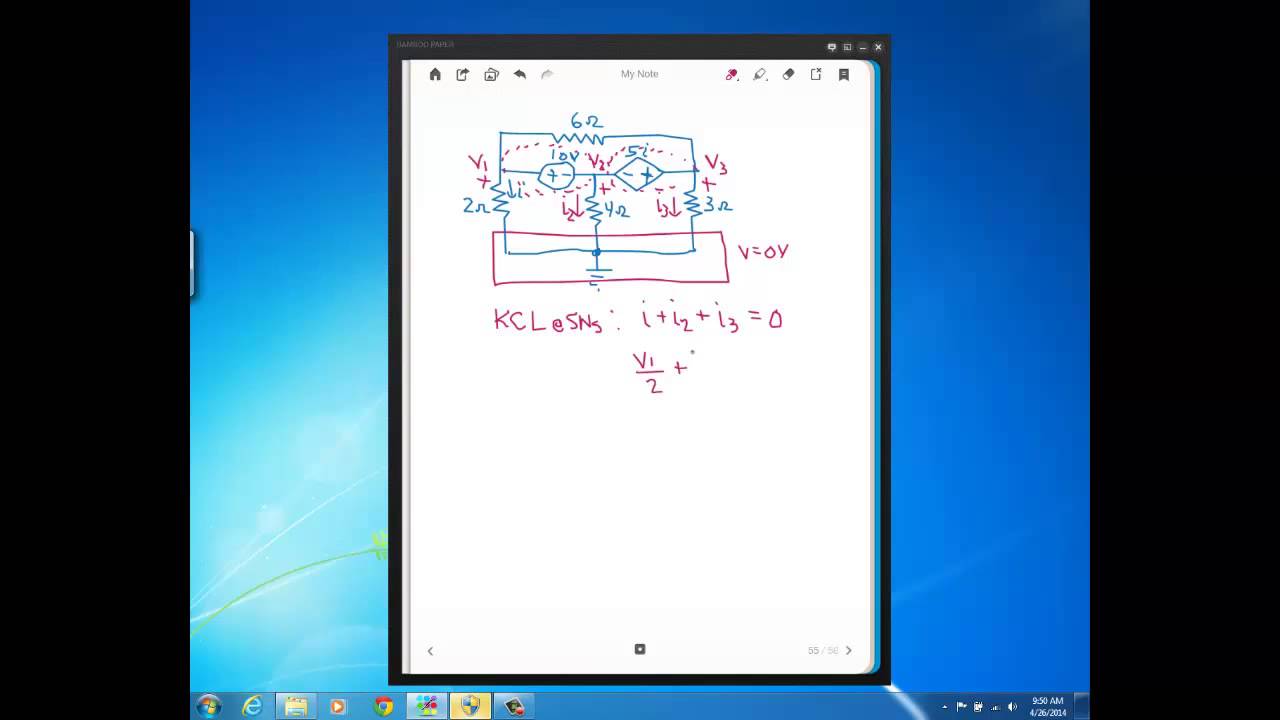 BAMBOO PAPER
My Note
6Ω
V1 10V V2 5i V3
+ + - + - + +
i
2Ω i2 4Ω i3 3Ω
V=0V
KCL@SNs: i+i2+i3=0
V1/2 +
55 / 56
9:50 AM
4/26/2014